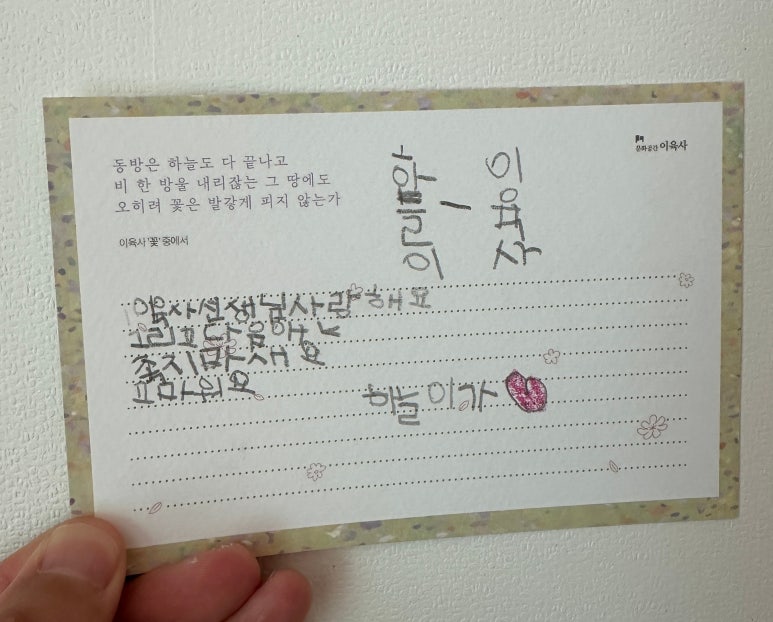 동방은 하늘도 다 끝나고
비 한 방울 내리잖는 그 땅에도
오히려 꽃은 발갛게 피지 않는가
이육사 '꽃' 중에서
문화공간 이육사
이육사
이육사선생님사랑해요
그리고 다음애는
죽지마새요
고마워요
하늘이가